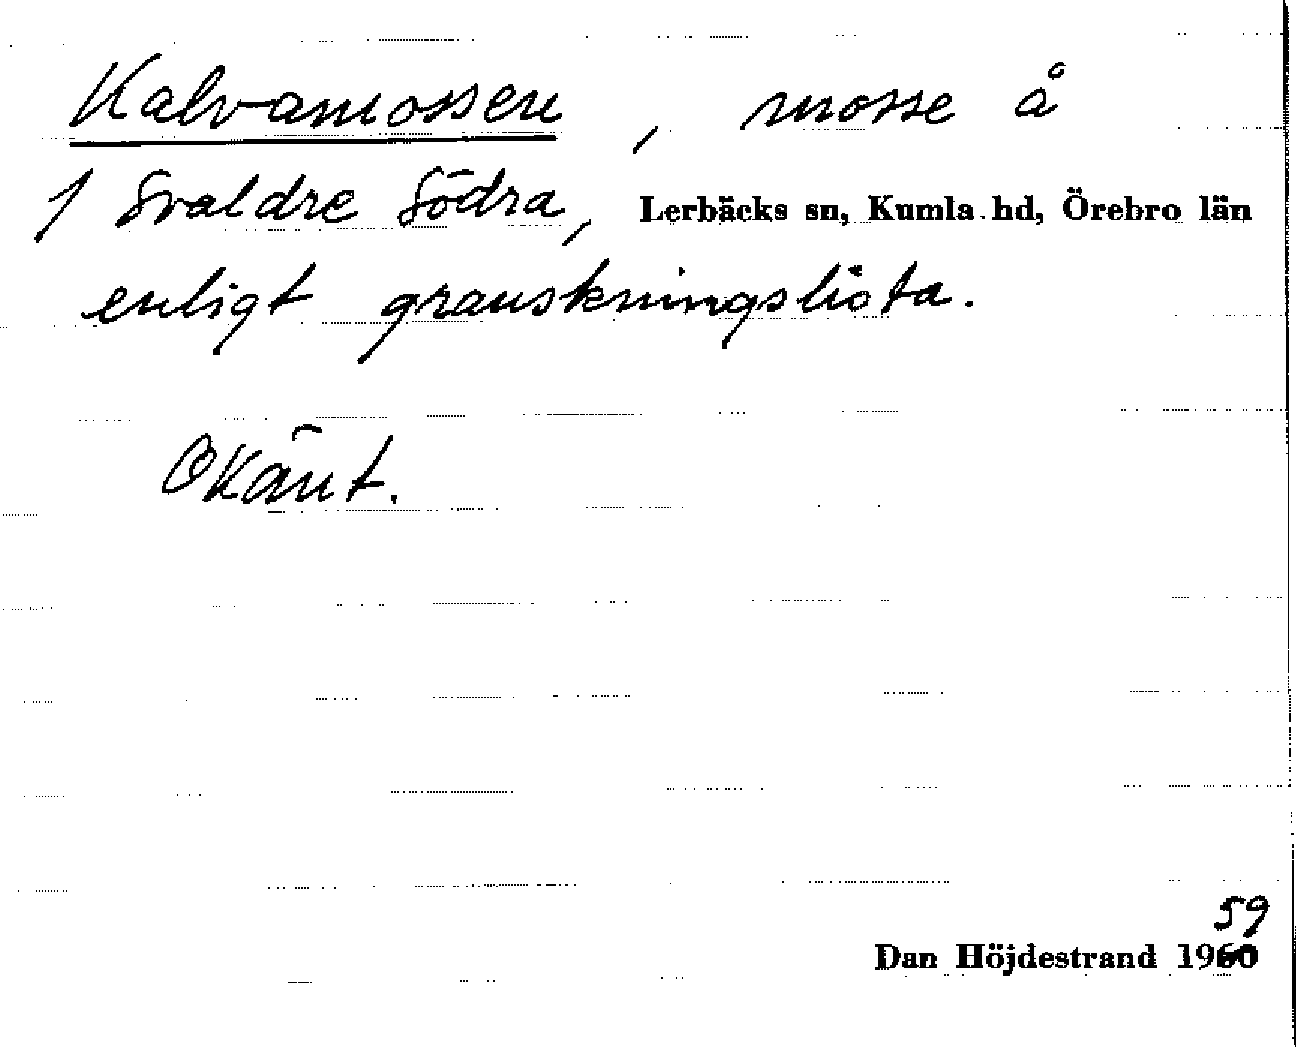 Kalvamossen, mosse å
1 Svaldre Södra, Lerbäcks sn, Kumla hd, Örebro län
enligt granskningslista.
Okänt.
59
Dan Höjdestrand 1960